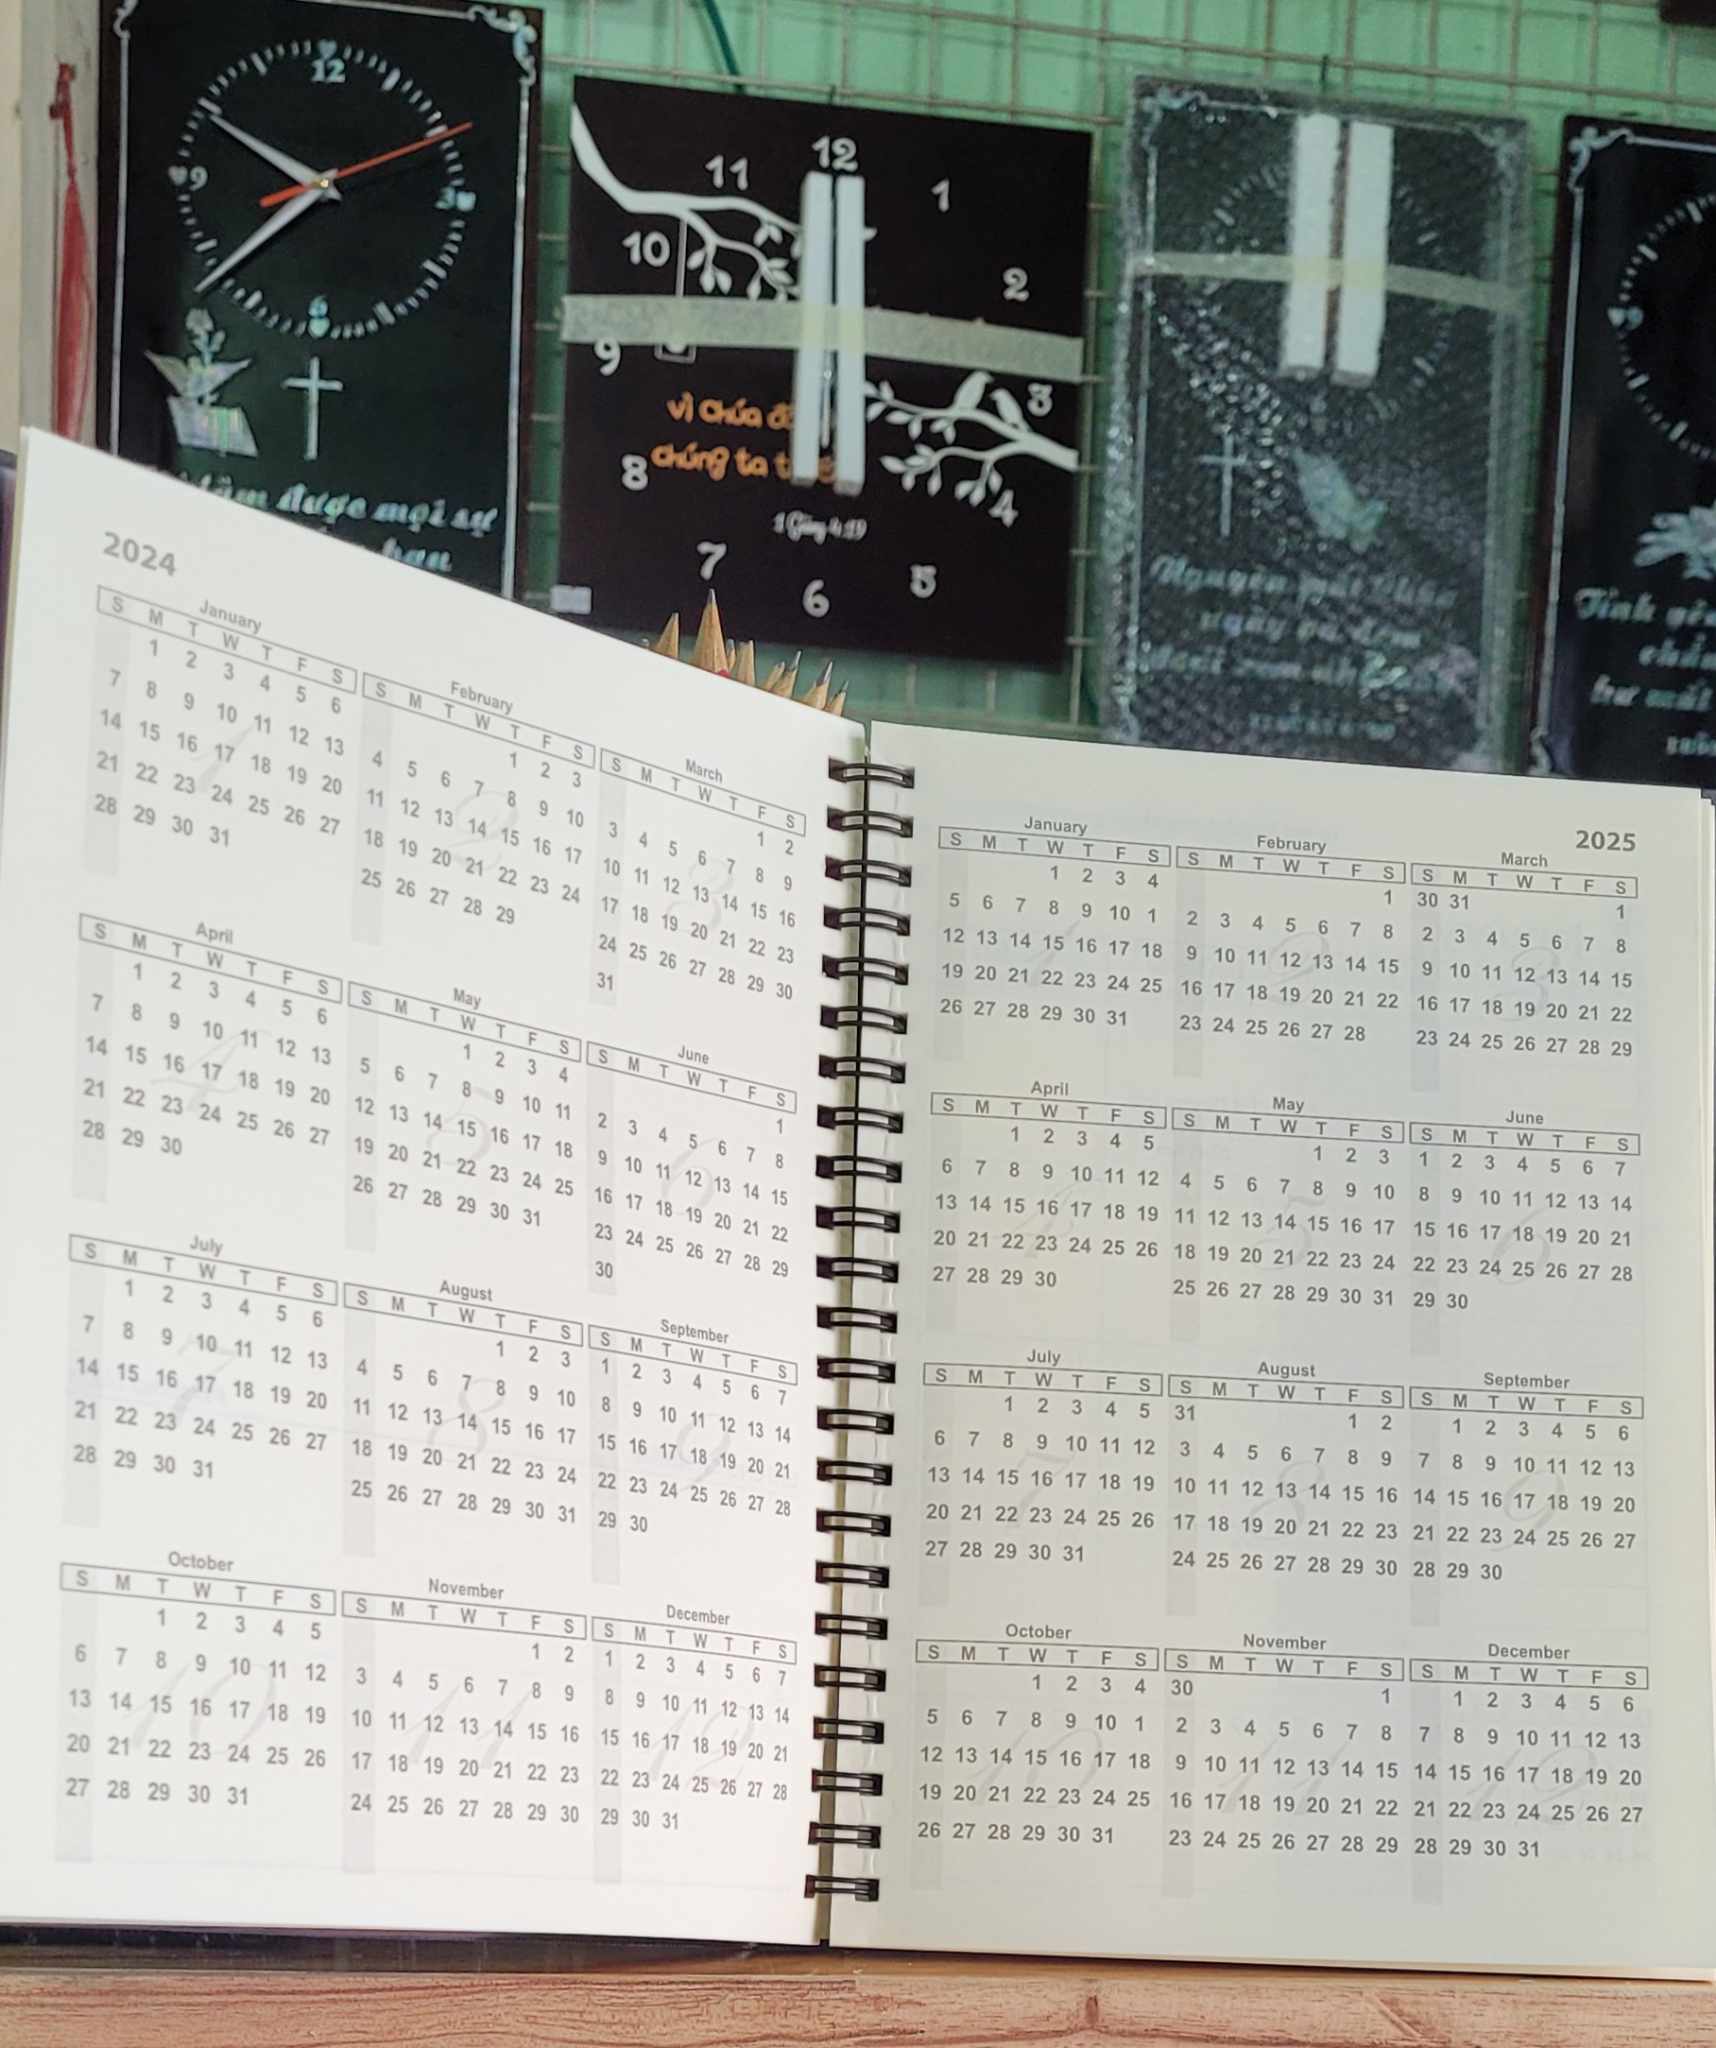 12
9
3
6
tâm được mọi sự
12
11
1
10
2
9
3
vì Chúa
8
chúng ta
4
7
5
6
9
2024
January
S M T W T F S
1 2 3 4 5 6
7 8 9 10 11 12 13
14 15 16 17 18 19 20
21 22 23 24 25 26 27
28 29 30 31
February
S M T W T F S
1 2 3
4 5 6 7 8 9 10
11 12 13 14 15 16 17
18 19 20 21 22 23 24
25 26 27 28 29
March
S M T W T F S
1 2
3 4 5 6 7 8 9
10 11 12 13 14 15 16
17 18 19 20 21 22 23
24 25 26 27 28 29 30
31
April
S M T W T F S
1 2 3 4 5 6
7 8 9 10 11 12 13
14 15 16 17 18 19 20
21 22 23 24 25 26 27
28 29 30
May
S M T W T F S
1 2 3 4
5 6 7 8 9 10 11
12 13 14 15 16 17 18
19 20 21 22 23 24 25
26 27 28 29 30 31
June
S M T W T F S
1
2 3 4 5 6 7 8
9 10 11 12 13 14 15
16 17 18 19 20 21 22
23 24 25 26 27 28 29
30
July
S M T W T F S
1 2 3 4 5 6
7 8 9 10 11 12 13
14 15 16 17 18 19 20
21 22 23 24 25 26 27
28 29 30 31
August
S M T W T F S
1 2 3
4 5 6 7 8 9 10
11 12 13 14 15 16 17
18 19 20 21 22 23 24
25 26 27 28 29 30 31
September
S M T W T F S
1 2 3 4 5 6 7
8 9 10 11 12 13 14
15 16 17 18 19 20 21
22 23 24 25 26 27 28
29 30
October
S M T W T F S
1 2 3 4 5
6 7 8 9 10 11 12
13 14 15 16 17 18 19
20 21 22 23 24 25 26
27 28 29 30 31
November
S M T W T F S
1 2
3 4 5 6 7 8 9
10 11 12 13 14 15 16
17 18 19 20 21 22 23
24 25 26 27 28 29 30
December
S M T W T F S
1 2 3 4 5 6 7
8 9 10 11 12 13 14
15 16 17 18 19 20 21
22 23 24 25 26 27 28
29 30 31
2025
January
S M T W T F S
1 2 3 4
5 6 7 8 9 10 1
12 13 14 15 16 17 18
19 20 21 22 23 24 25
26 27 28 29 30 31
February
S M T W T F S
1
2 3 4 5 6 7 8
9 10 11 12 13 14 15
16 17 18 19 20 21 22
23 24 25 26 27 28
March
S M T W T F S
30 31 1
2 3 4 5 6 7 8
9 10 11 12 13 14 15
16 17 18 19 20 21 22
23 24 25 26 27 28 29
April
S M T W T F S
1 2 3 4 5
6 7 8 9 10 11 12
13 14 15 16 17 18 19
20 21 22 23 24 25 26
27 28 29 30
May
S M T W T F S
1 2 3
4 5 6 7 8 9 10
11 12 13 14 15 16 17
18 19 20 21 22 23 24
25 26 27 28 29 30 31
June
S M T W T F S
1 2 3 4 5 6 7
8 9 10 11 12 13 14
15 16 17 18 19 20 21
22 23 24 25 26 27 28
29 30
July
S M T W T F S
1 2 3 4 5
6 7 8 9 10 11 12
13 14 15 16 17 18 19
20 21 22 23 24 25 26
27 28 29 30 31
August
S M T W T F S
31 1 2
3 4 5 6 7 8 9
10 11 12 13 14 15 16
17 18 19 20 21 22 23
24 25 26 27 28 29 30
September
S M T W T F S
1 2 3 4 5 6
7 8 9 10 11 12 13
14 15 16 17 18 19 20
21 22 23 24 25 26 27
28 29 30
October
S M T W T F S
1 2 3 4
5 6 7 8 9 10 1
12 13 14 15 16 17 18
19 20 21 22 23 24 25
26 27 28 29 30 31
November
S M T W T F S
30 1
2 3 4 5 6 7 8
9 10 11 12 13 14 15
16 17 18 19 20 21 22
23 24 25 26 27 28 29
December
S M T W T F S
1 2 3 4 5 6
7 8 9 10 11 12 13
14 15 16 17 18 19 20
21 22 23 24 25 26 27
28 29 30 31